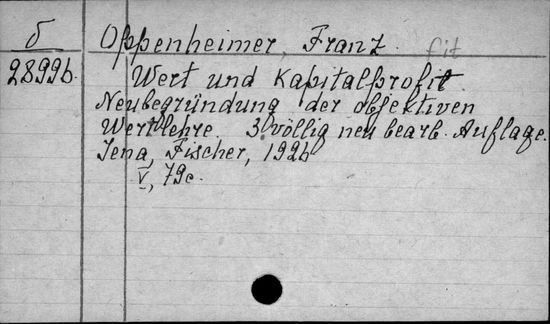 б Oppenheimer, Franz. fit
28996. Wert und Kapitalprofit
Neubegründung der objektiven
Wertlehre. 3 völlig neu bearb. Auflage.
Jena, Fischer, 1926
V, 79c.